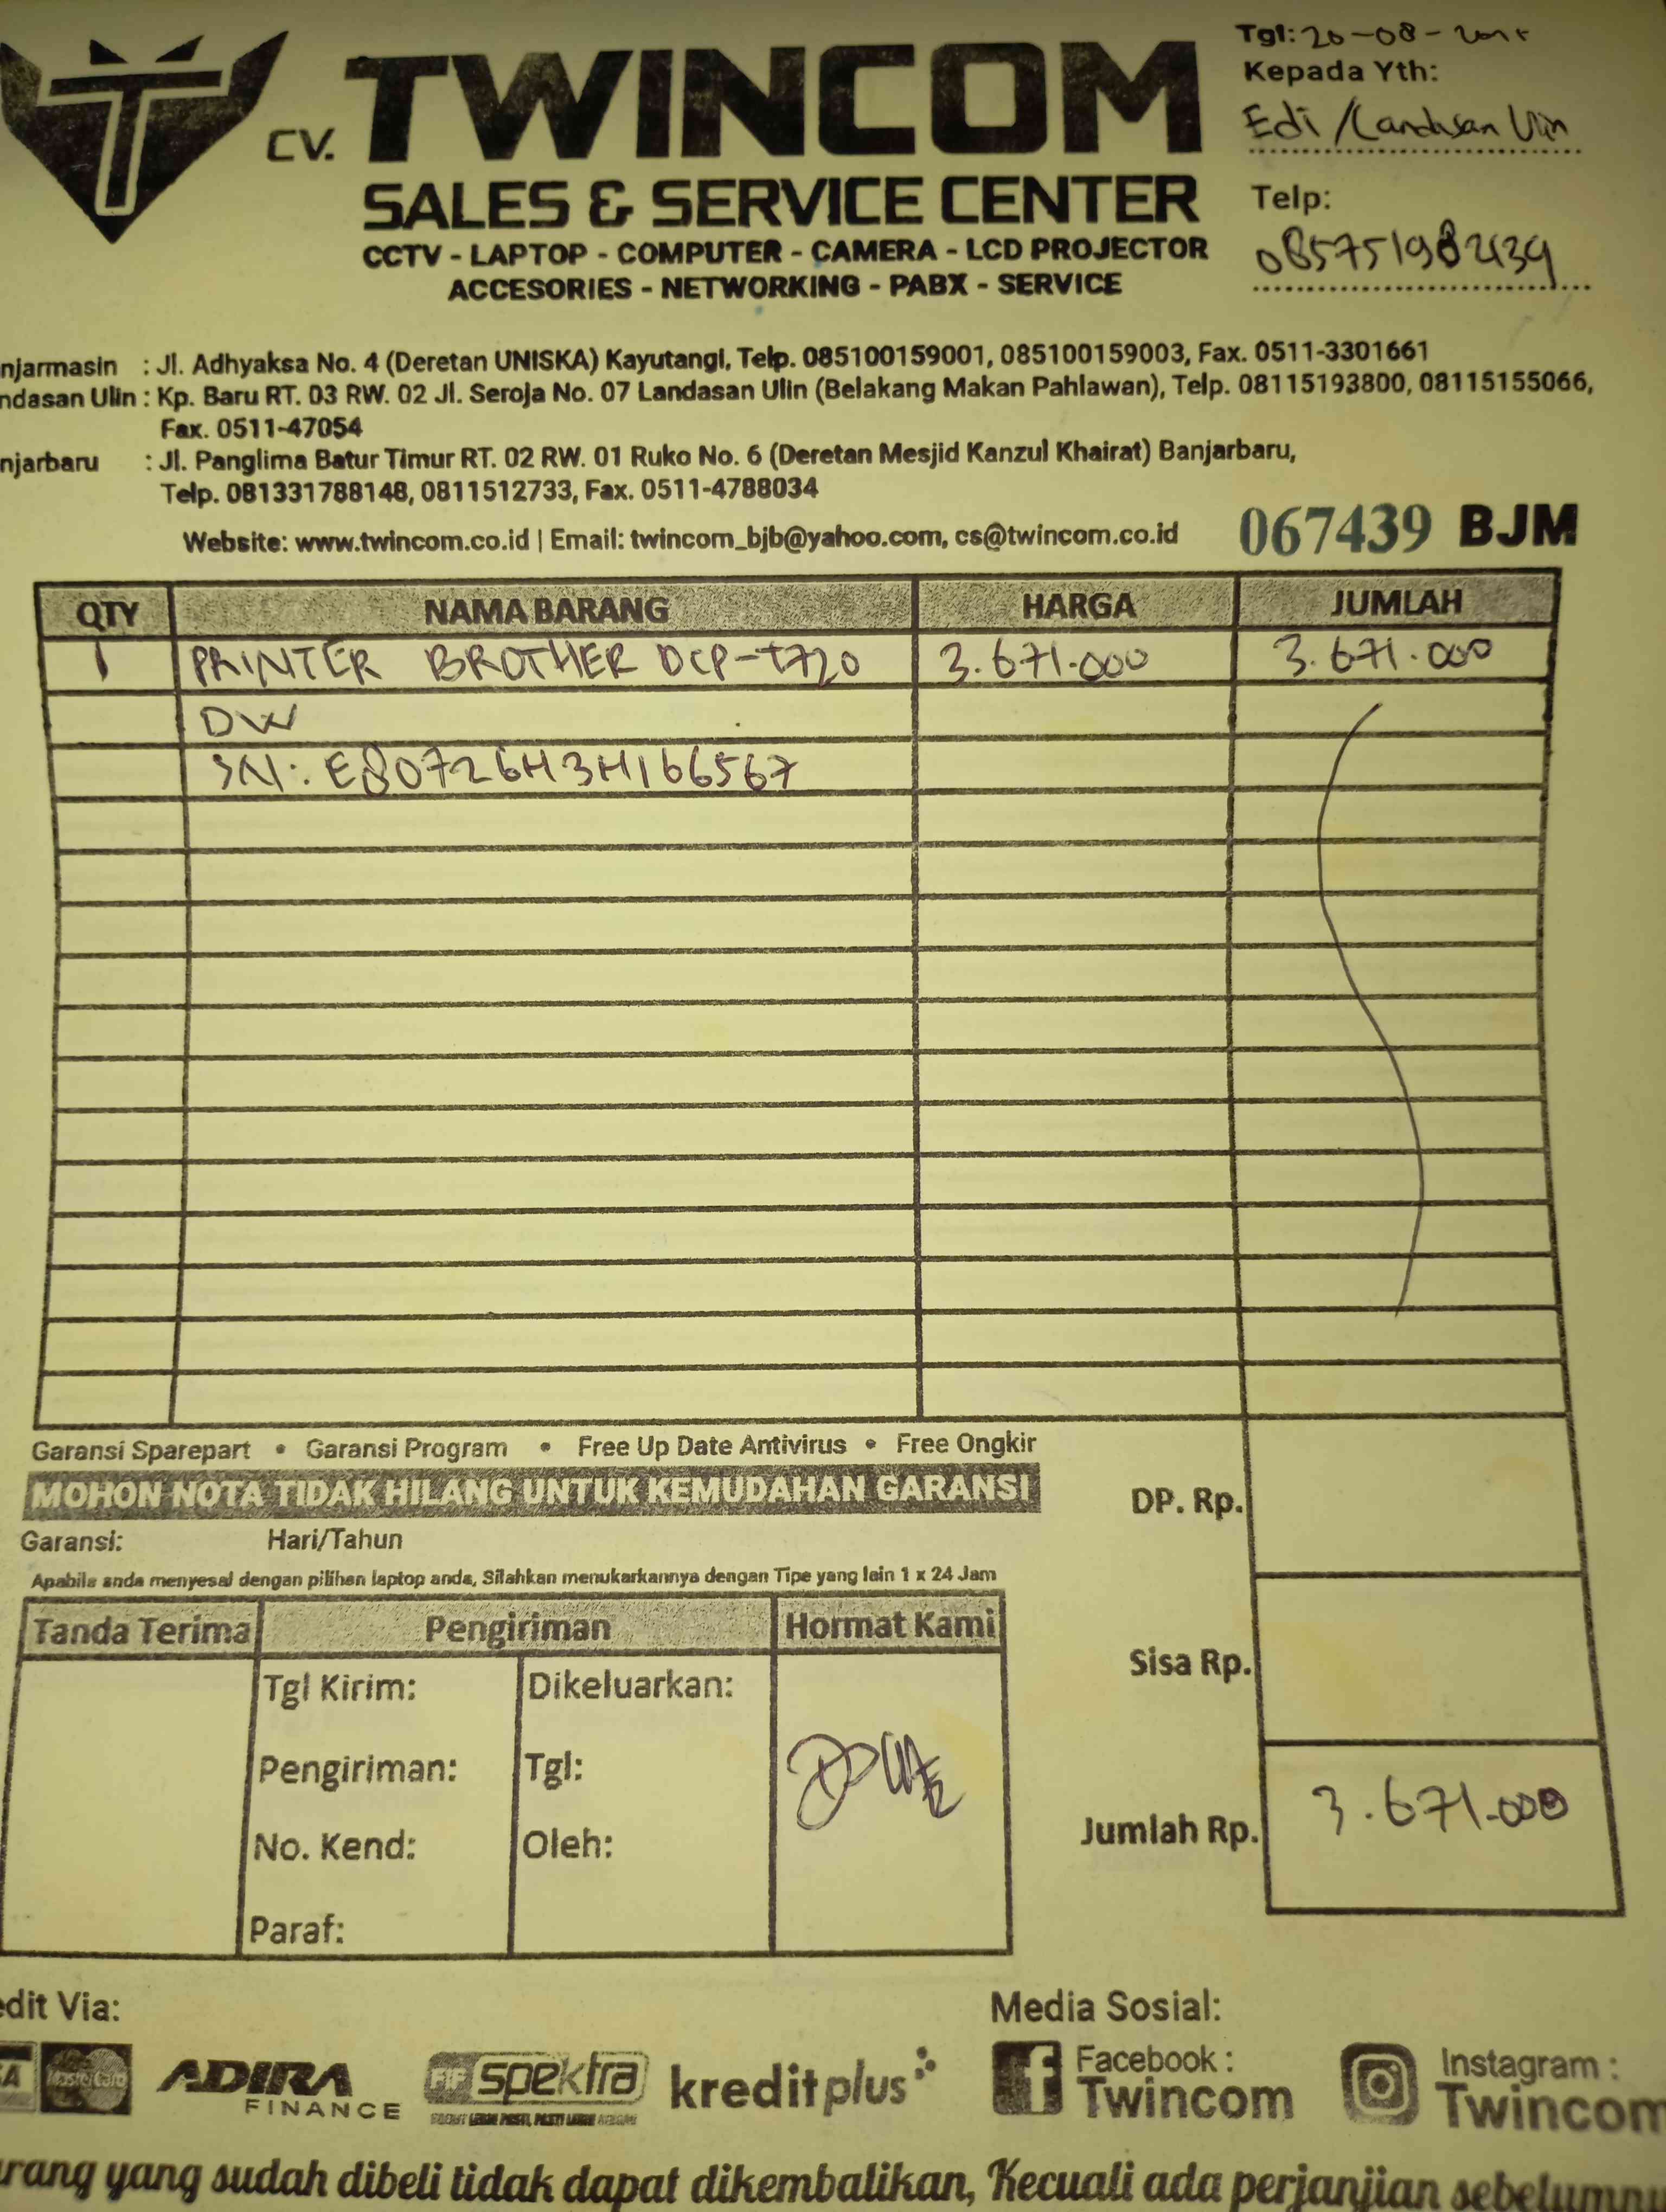 Tgl: 20-08-
Kepada Yth:
Edi / Landasan Ulin
Telp:
085751982439
CV. TWINCOM
SALES & SERVICE CENTER
CCTV - LAPTOP - COMPUTER - CAMERA - LCD PROJECTOR
ACCESORIES - NETWORKING - PABX - SERVICE
njarmasin : Jl. Adhyaksa No. 4 (Deretan UNISKA) Kayutangi, Telp. 085100159001, 085100159003, Fax. 0511-3301661
ndasan Ulin : Kp. Baru RT. 03 RW. 02 Jl. Seroja No. 07 Landasan Ulin (Belakang Makan Pahlawan), Telp. 08115193800, 08115155066,
Fax. 0511-47054
njarbaru : Jl. Panglima Batur Timur RT. 02 RW. 01 Ruko No. 6 (Deretan Mesjid Kanzul Khairat) Banjarbaru,
Telp. 081331788148, 0811512733, Fax. 0511-4788034
Website: www.twincom.co.id | Email: twincom_bjb@yahoo.com, cs@twincom.co.id
067439 BJM
QTY NAMA BARANG HARGA JUMLAH
1 PRINTER BROTHER DCP-T720 3.671.000 3.671.000
DW
SN: E80726H3H166567
Garansi Sparepart • Garansi Program • Free Up Date Antivirus • Free Ongkir
MOHON NOTA TIDAK HILANG UNTUK KEMUDAHAN GARANSI
Garansi: Hari/Tahun
Apabila anda menyesal dengan pilihan laptop anda, Silahkan menukarkannya dengan Tipe yang lain 1 x 24 Jam
DP. Rp.
Sisa Rp.
Jumlah Rp. 3.671.000
Tanda Terima Pengiriman Hormat Kami
Tgl Kirim: Dikeluarkan:
Pengiriman: Tgl:
No. Kend: Oleh:
Paraf:
edit Via:
MasterCard
ADIRA
FINANCE
FIF spektra
kreditplus
Media Sosial:
Facebook :
Twincom
Instagram :
Twincom
arang yang sudah dibeli tidak dapat dikembalikan, Kecuali ada perjanjian sebelumny